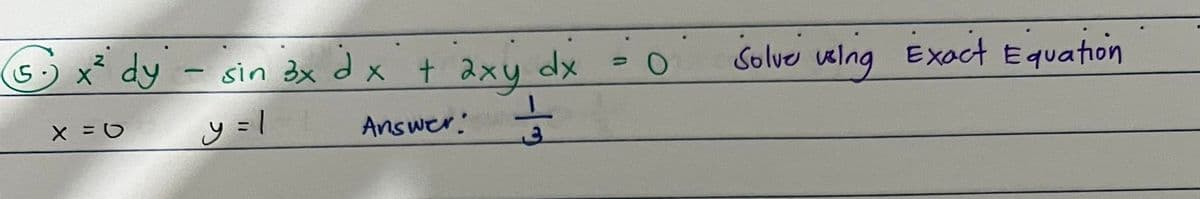 5.) x² dy - sin 3x dx + 2xy dx = 0 Solve using Exact Equation
x = 0 y = 1 Answer: 1/3